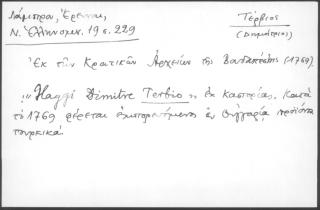 Λάμπρου, Ἔρευναι,
Ν. Ἑλληνομν. 19 σ. 229
Τέρβιος
(Δημήτριος)
Ἐκ τῶν Κρατικῶν Ἀρχείων τῆς Βουδαπέστης (1769).
"Haggi Dimitre Terbio" ἐκ Καστορίας. Κατὰ
τὸ 1769 φέρεται ἐμπορευόμενος ἐν Οὑγγαρίᾳ προϊόντα
τουρκικά